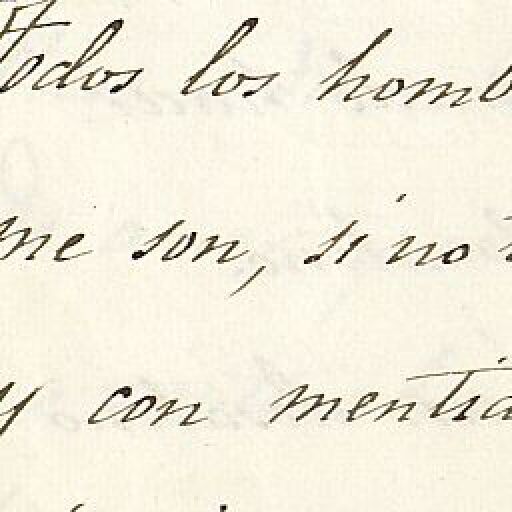 Todos los homb
me son, si no
y con mentid